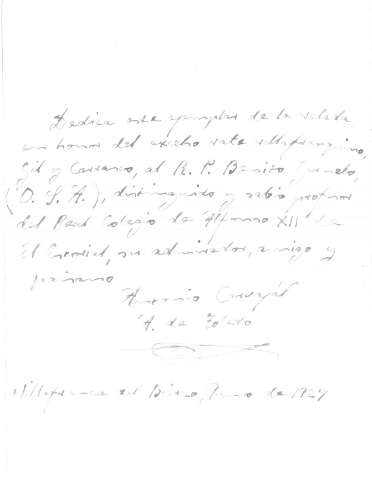 Dedica este ejemplar de la velada
en honor del excelso vate villafranquino,
Gil y Carrasco, al R. P. Benito
(O. S. A.), distinguido y sabio profesor
del Real Colegio de Alfonso XII de
El Escorial, su admirador, amigo y
paisano
Antonio Carvajal
A. de Toledo
Villafranca del Bierzo, de 1927